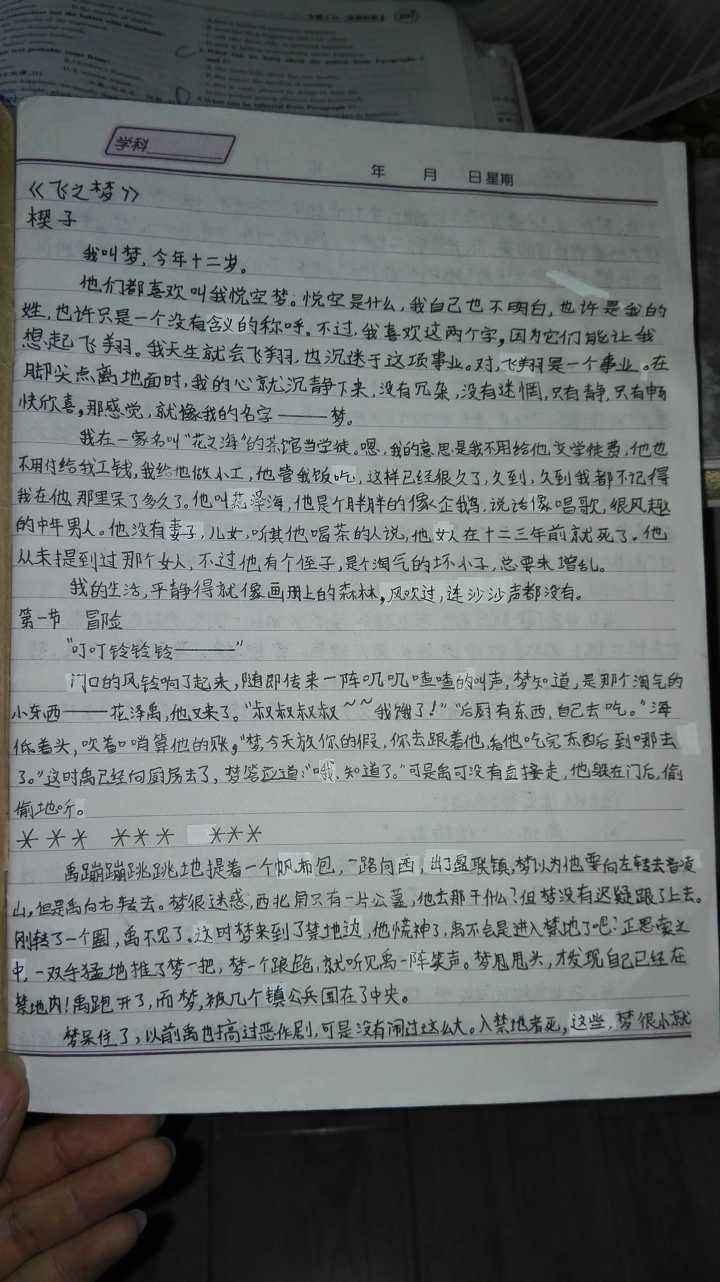 学科
年 月 日 星期
《飞之梦》
楔子
我叫梦,今年十二岁。
他们都喜欢叫我悦空梦。悦空是什么,我自己也不明白,也许是我的
姓,也许只是一个没有含义的称呼。不过,我喜欢这两个字,因为它们能让我
想起飞翔。我天生就会飞翔,也沉迷于这项事业。对,飞翔是一个事业。在
脚尖点离地面时,我的心就沉静下来,没有冗杂,没有迷惘,只有静,只有畅
快欣喜,那感觉,就像我的名字——梦。
我在一家名叫“花之海”的茶馆当学徒。嗯,我的意思是我不用给他交学徒费,他也
不用付给我工钱,我给他做小工,他管我饭吃,这样已经很久了,久到,久到我都不记得
我在他那里呆了多久了。他叫花泽海,他是个胖胖的像企鹅,说话像唱歌,很风趣
的中年男人。他没有妻子,儿女,听其他喝茶的人说,他女人在十二三年前就死了。他
从未提到过那个女人,不过他有个侄子,是个淘气的坏小子,总要来增乱。
我的生活,平静得就像画册上的森林,风吹过,连沙沙声都没有。
第一节 冒险
“叮叮铃铃铃———”
门口的风铃响了起来,随即传来一阵叽叽喳喳的叫声,梦知道,是那个淘气的
小东西——花泽禹,他又来了。“叔叔叔叔~~我饿了!”“后厨有东西,自己去吃。”海
低着头,吹着口哨算他的账,“梦,今天放你的假,你去跟着他,看他吃完东西后到哪去
了。”这时禹已经向厨房去了,梦答应道:“哦,知道了。”可是禹可没有直接走,他躲在门后,偷
偷地听。
*** *** ***
禹蹦蹦跳跳地提着一个帆布包,一路向西,出了盘联镇,梦以为他要向左转去音凌
山,但是禹向右转去。梦很迷惑,西北角只有一片公墓,他去那干什么?但梦没有迟疑跟了上去。
刚转了一个圈,禹不见了。这时梦来到了禁地边,他慌神了,禹不会是进入禁地了吧?正思索之
中,一双手猛地推了梦一把,梦一个踉跄,就听见禹一阵笑声。梦甩甩头,才发现自己已经在
禁地内!禹跑开了,而梦,被几个镇公兵围在了中央。
梦呆住了,以前禹也搞过恶作剧,可是没有闹过这么大。入禁地者死,这些,梦很小就